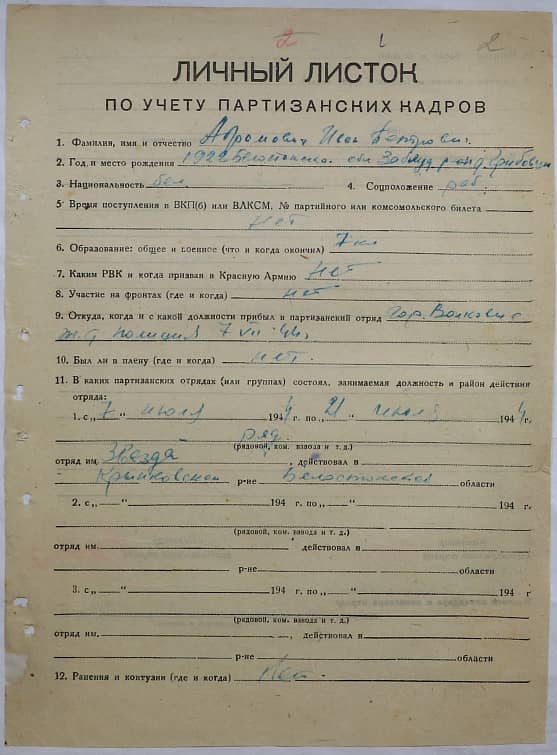 2 1 2
ЛИЧНЫЙ ЛИСТОК
ПО УЧЕТУ ПАРТИЗАНСКИХ КАДРОВ
1. Фамилия, имя и отчество Абрамович Иван Петрович
2. Год и место рождения 1922 Белостокская обл Заблуд р-он д.
3. Национальность бел. 4. Соцположение раб.
5 Время поступления в ВКП(б) или ВЛКСМ, № партийного или комсомольского билета
Нет
6. Образование: общее и военное (что и когда окончил) 7 кл
7. Каким РВК и когда призван в Красную Армию Нет
8. Участие на фронтах (где и когда) нет
9. Откуда, когда и с какой должности прибыл в партизанский отряд гор.
7 VII-44г.
10. Был ли в плену (где и когда) нет.
11. В каких партизанских отрядах (или группах) состоял, занимаемая должность и район действия
отряда:
1. с „7“ июля 1944 г. по „21“ июля 1944 г.
ряд.
(рядовой, ком. взвода и т. д.)
отряд им. Звезда, действовал в
Крынковском р-не Белостокской области
2. с „ “ 194 г. по „ “ 194 г.
(рядовой, ком. взвода и т. д.)
отряд им. , действовал в
р-не области
3. с „ “ 194 г. по „ “ 194 г.
(рядовой, ком. взвода и т. д.)
отряд им. , действовал в
р-не области
12. Ранения и контузии (где и когда) Нет.